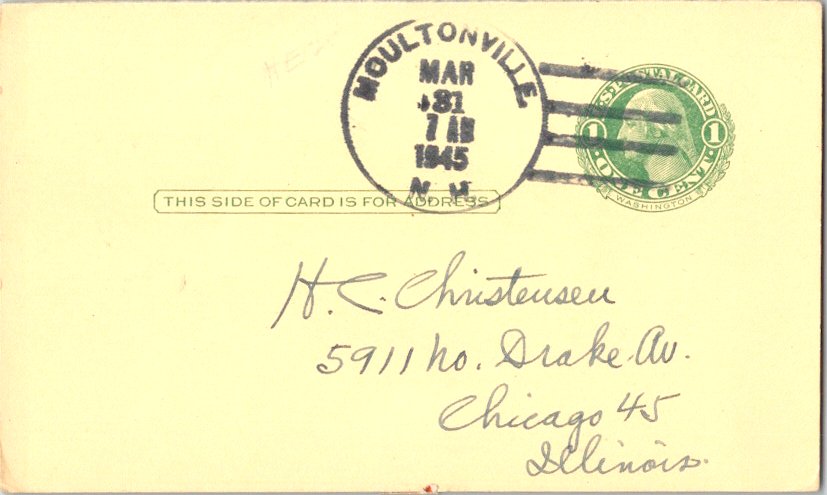 MOULTONVILLE
MAR
31
7 AM
1945
N. H.
U.S. POSTAL CARD
1 1
ONE CENT
WASHINGTON
THIS SIDE OF CARD IS FOR ADDRESS
H. C. Christensen
5911 No. Drake Av.
Chicago 45
Illinois.